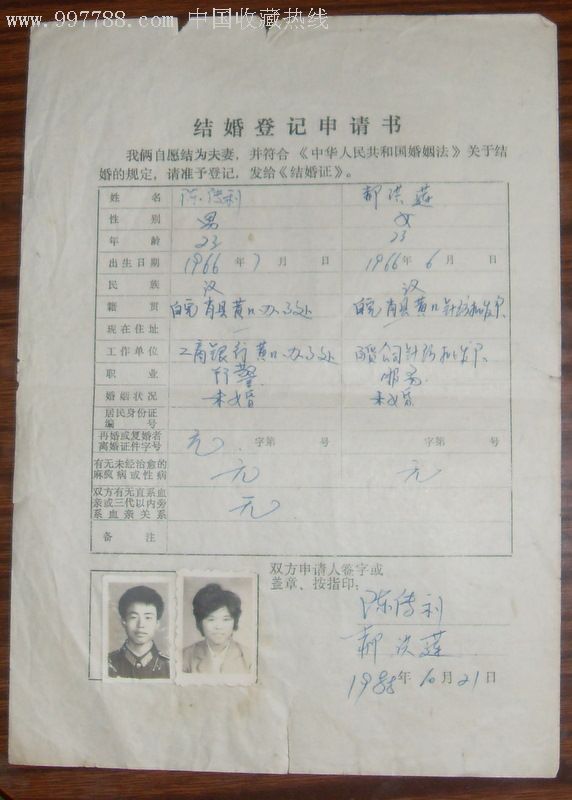 www.997788.com 中国收藏热线
结婚登记申请书
我俩自愿结为夫妻，并符合《中华人民共和国婚姻法》关于结
婚的规定，请准予登记，发给《结婚证》。
姓名 陈传利 郝洪莲
性别 男 女
年龄 23 23
出生日期 1966年7月 日 1966年6月 日
民族 汉 汉
籍贯 皖肖县黄口办事处 皖肖县黄口针纺批发
现在住址
工作单位 工商银行黄口办事处 公司针纺批发
职业
婚姻状况 未婚 未婚
居民身份证
编号
再婚或复婚者
离婚证件字号 无 字第 号 字第 号
有无未经治愈的
麻疯病或性病 无 无
双方有无直系血
亲或三代以内旁
系血亲关系 无
备注
双方申请人签字或
盖章、按指印：
陈传利
郝洪莲
1988年10月21日